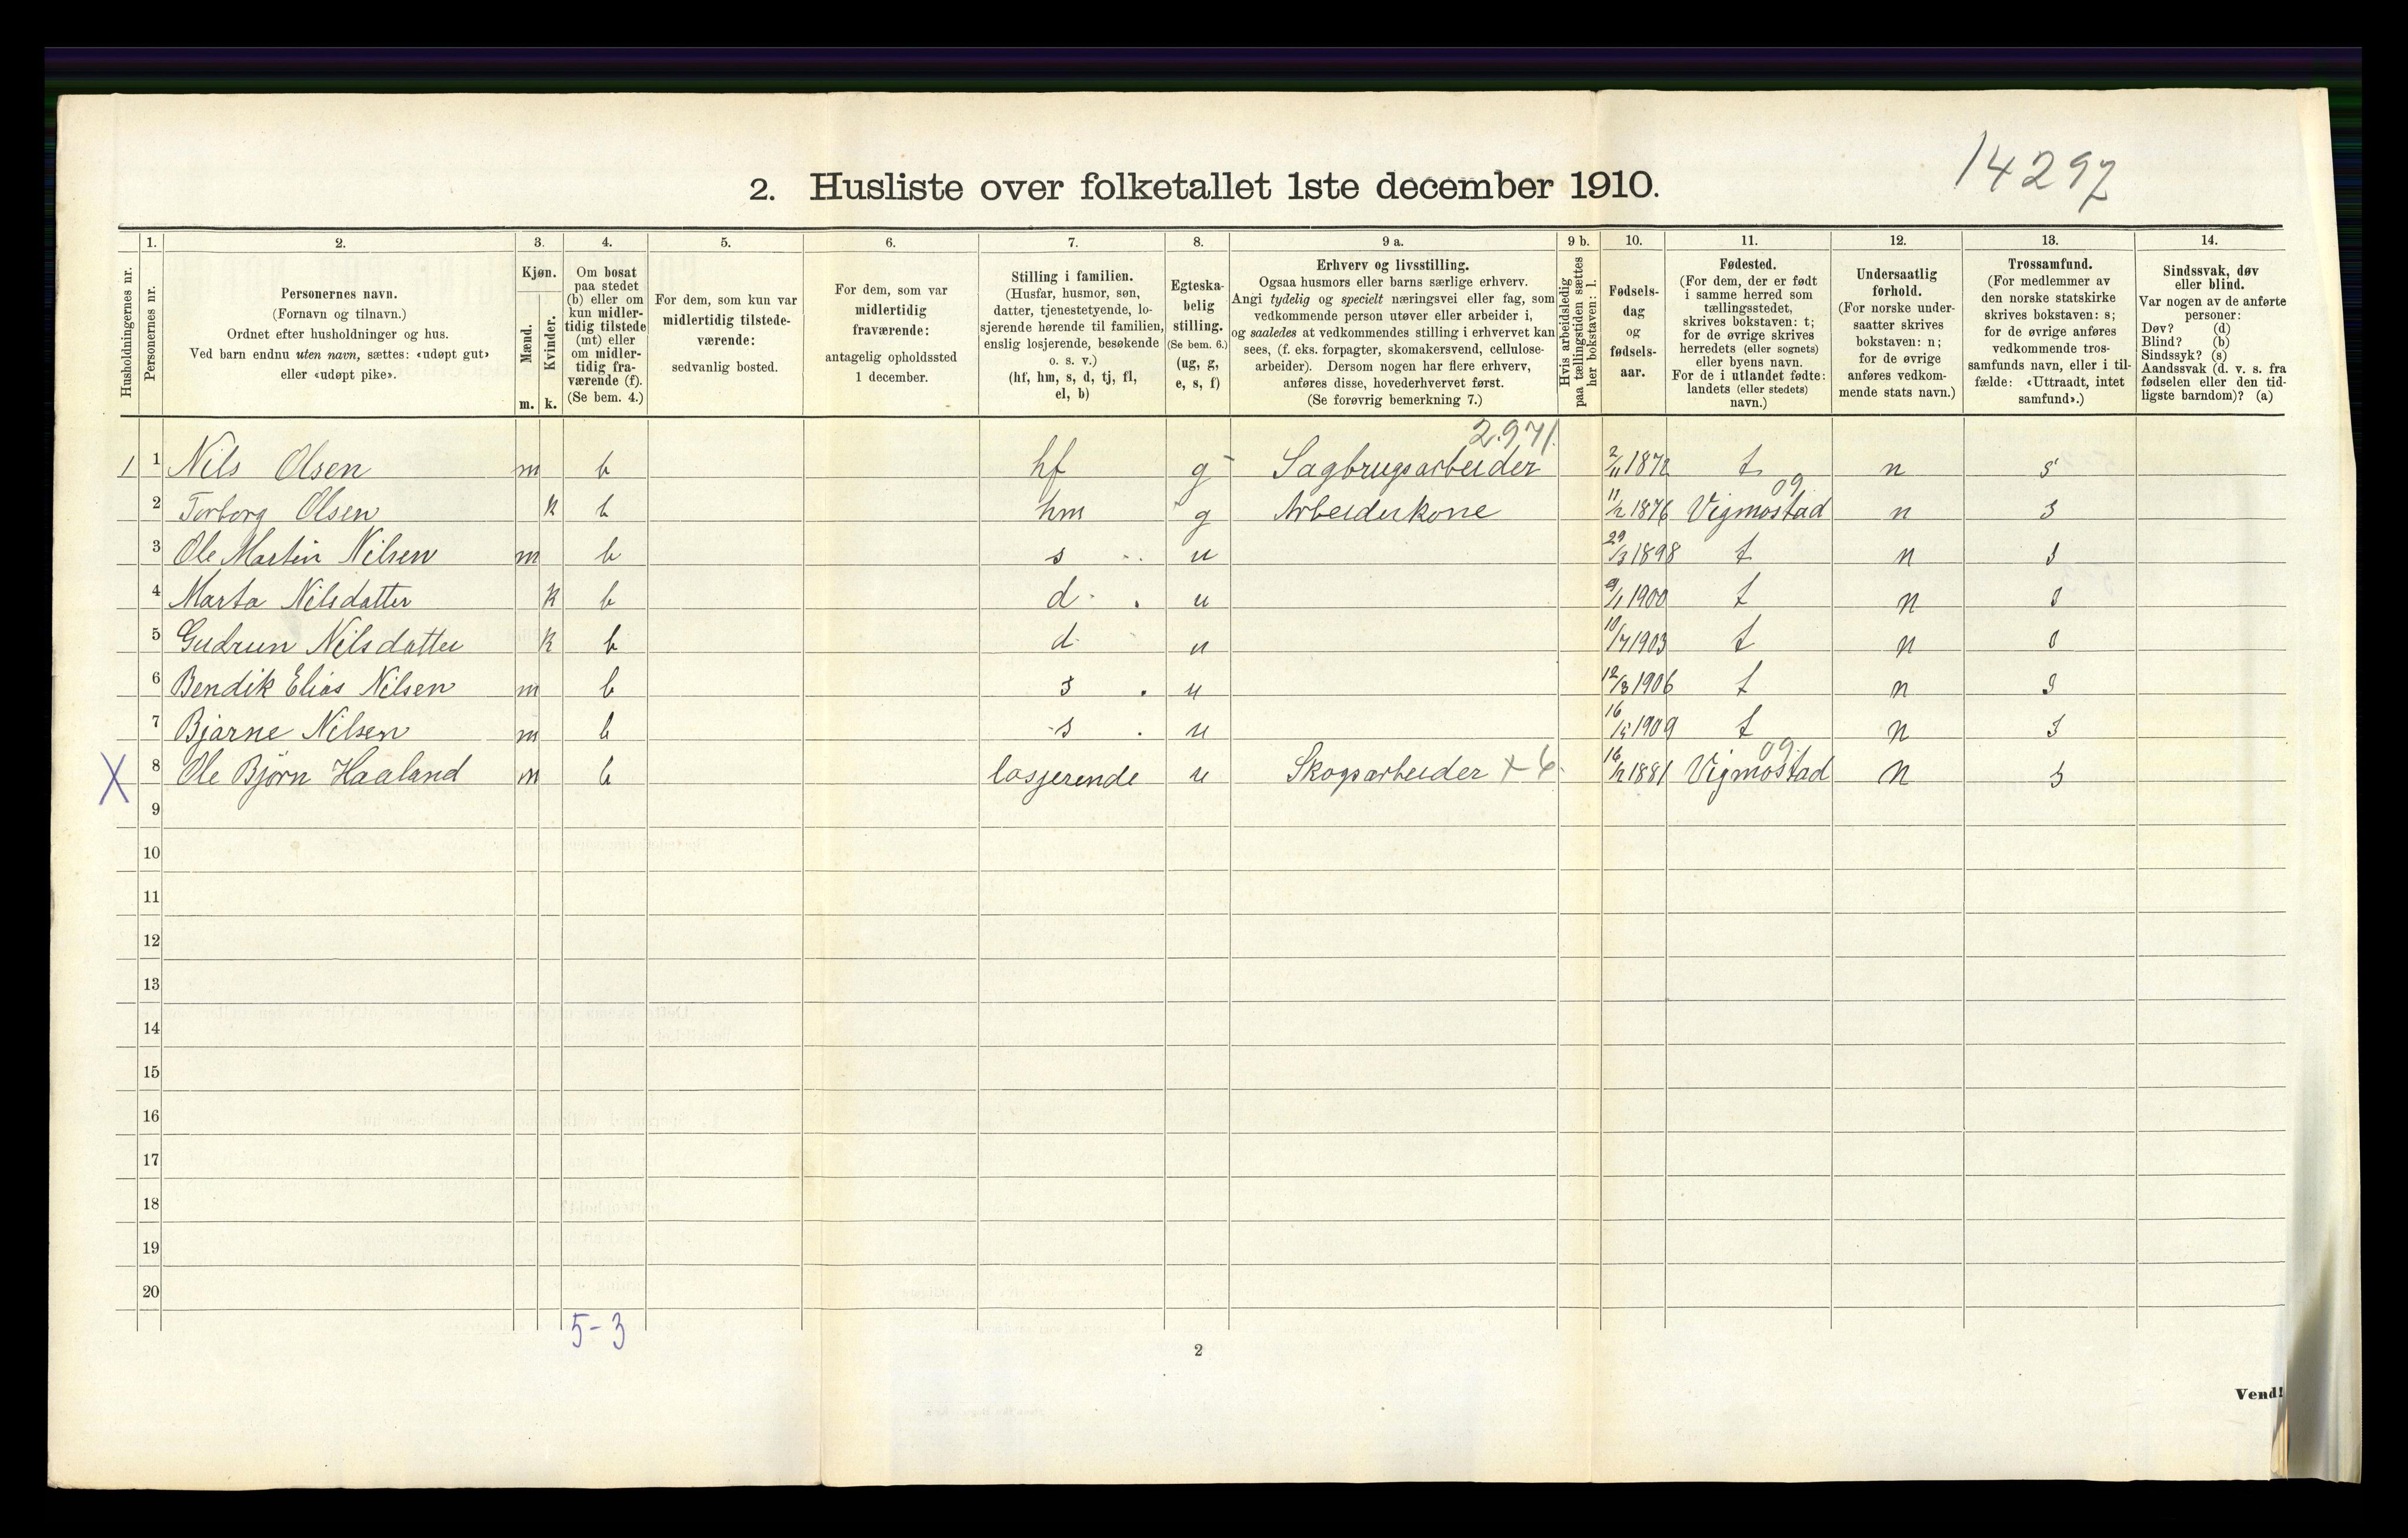 14297
2. Husliste over folketallet 1ste december 1910.
Husholdningernes nr.
1. Personernes nr.
2. Personernes navn.
(Fornavn og tilnavn.)
Ordnet efter husholdninger og hus.
Ved barn endnu uten navn, sættes: «udøpt gut»
eller «udøpt pike».
3. Kjøn.
Mænd. m.
Kvinder. k.
4. Om bosat
paa stedet
(b) eller om
kun midler-
tidig tilstede
(mt) eller
om midler-
tidig fra-
værende (f).
(Se bem. 4.)
5. For dem, som kun var
midlertidig tilstede-
værende:
sedvanlig bosted.
6. For dem, som var
midlertidig
fraværende:
antagelig opholdssted
1 december.
7. Stilling i familien.
(Husfar, husmor, søn,
datter, tjenestetyende, lo-
sjerende hørende til familien,
enslig losjerende, besøkende
o. s. v.)
(hf, hm, s, d, tj, fl,
el, b)
8. Egteska-
belig
stilling.
(Se bem. 6.)
(ug, g,
e, s, f)
9 a. Erhverv og livsstilling.
Ogsaa husmors eller barns særlige erhverv.
Angi tydelig og specielt næringsvei eller fag, som
vedkommende person utøver eller arbeider i,
og saaledes at vedkommendes stilling i erhvervet kan
sees, (f. eks. forpagter, skomakersvend, cellulose-
arbeider). Dersom nogen har flere erhverv,
anføres disse, hovederhvervet først.
(Se forøvrig bemerkning 7.)
9 b. Hvis arbeidsledig
paa tællingstiden sættes
her bokstaven: l.
10. Fødsels-
dag
og
fødsels-
aar.
11. Fødested.
(For dem, der er født
i samme herred som
tællingsstedet,
skrives bokstaven: t;
for de øvrige skrives
herredets (eller sognets)
eller byens navn.
For de i utlandet fødte:
landets (eller stedets)
navn.)
12. Undersaatlig
forhold.
(For norske under-
saatter skrives
bokstaven: n;
for de øvrige
anføres vedkom-
mende stats navn.)
13. Trossamfund.
(For medlemmer av
den norske statskirke
skrives bokstaven: s;
for de øvrige anføres
vedkommende tros-
samfunds navn, eller i til-
fælde: «Uttraadt, intet
samfund».)
14. Sindssvak, døv
eller blind.
Var nogen av de anførte
personer:
Døv? (d)
Blind? (b)
Sindssyk? (s)
Aandssvak (d. v. s. fra
fødselen eller den tid-
ligste barndom)? (a)
2.971.
1 1 Nils Olsen m b hf g Sagbrugsarbeider 2/11 1872 t n s
09
2 Torborg Olsen k b hm g Arbeiderkone 11/2 1876 Vigmostad n s
3 Ole Martin Nilsen m b s u 29/3 1898 t n s
4 Marta Nilsdatter k b d u 9/1 1900 t n s
5 Gudrun Nilsdatter k b d u 10/7 1903 t n s
6 Bendik Elias Nilsen m b s u 12/3 1906 t n s
7 Bjarne Nilsen m b s u 16/5 1909 t n s
09
X 8 Ole Bjørn Haaland m b losjerende u Skogsarbeider + 6. 16/2 1881 Vigmostad n s
9
10
11
12
13
14
15
16
17
18
19
20
5-3
2
Vend!